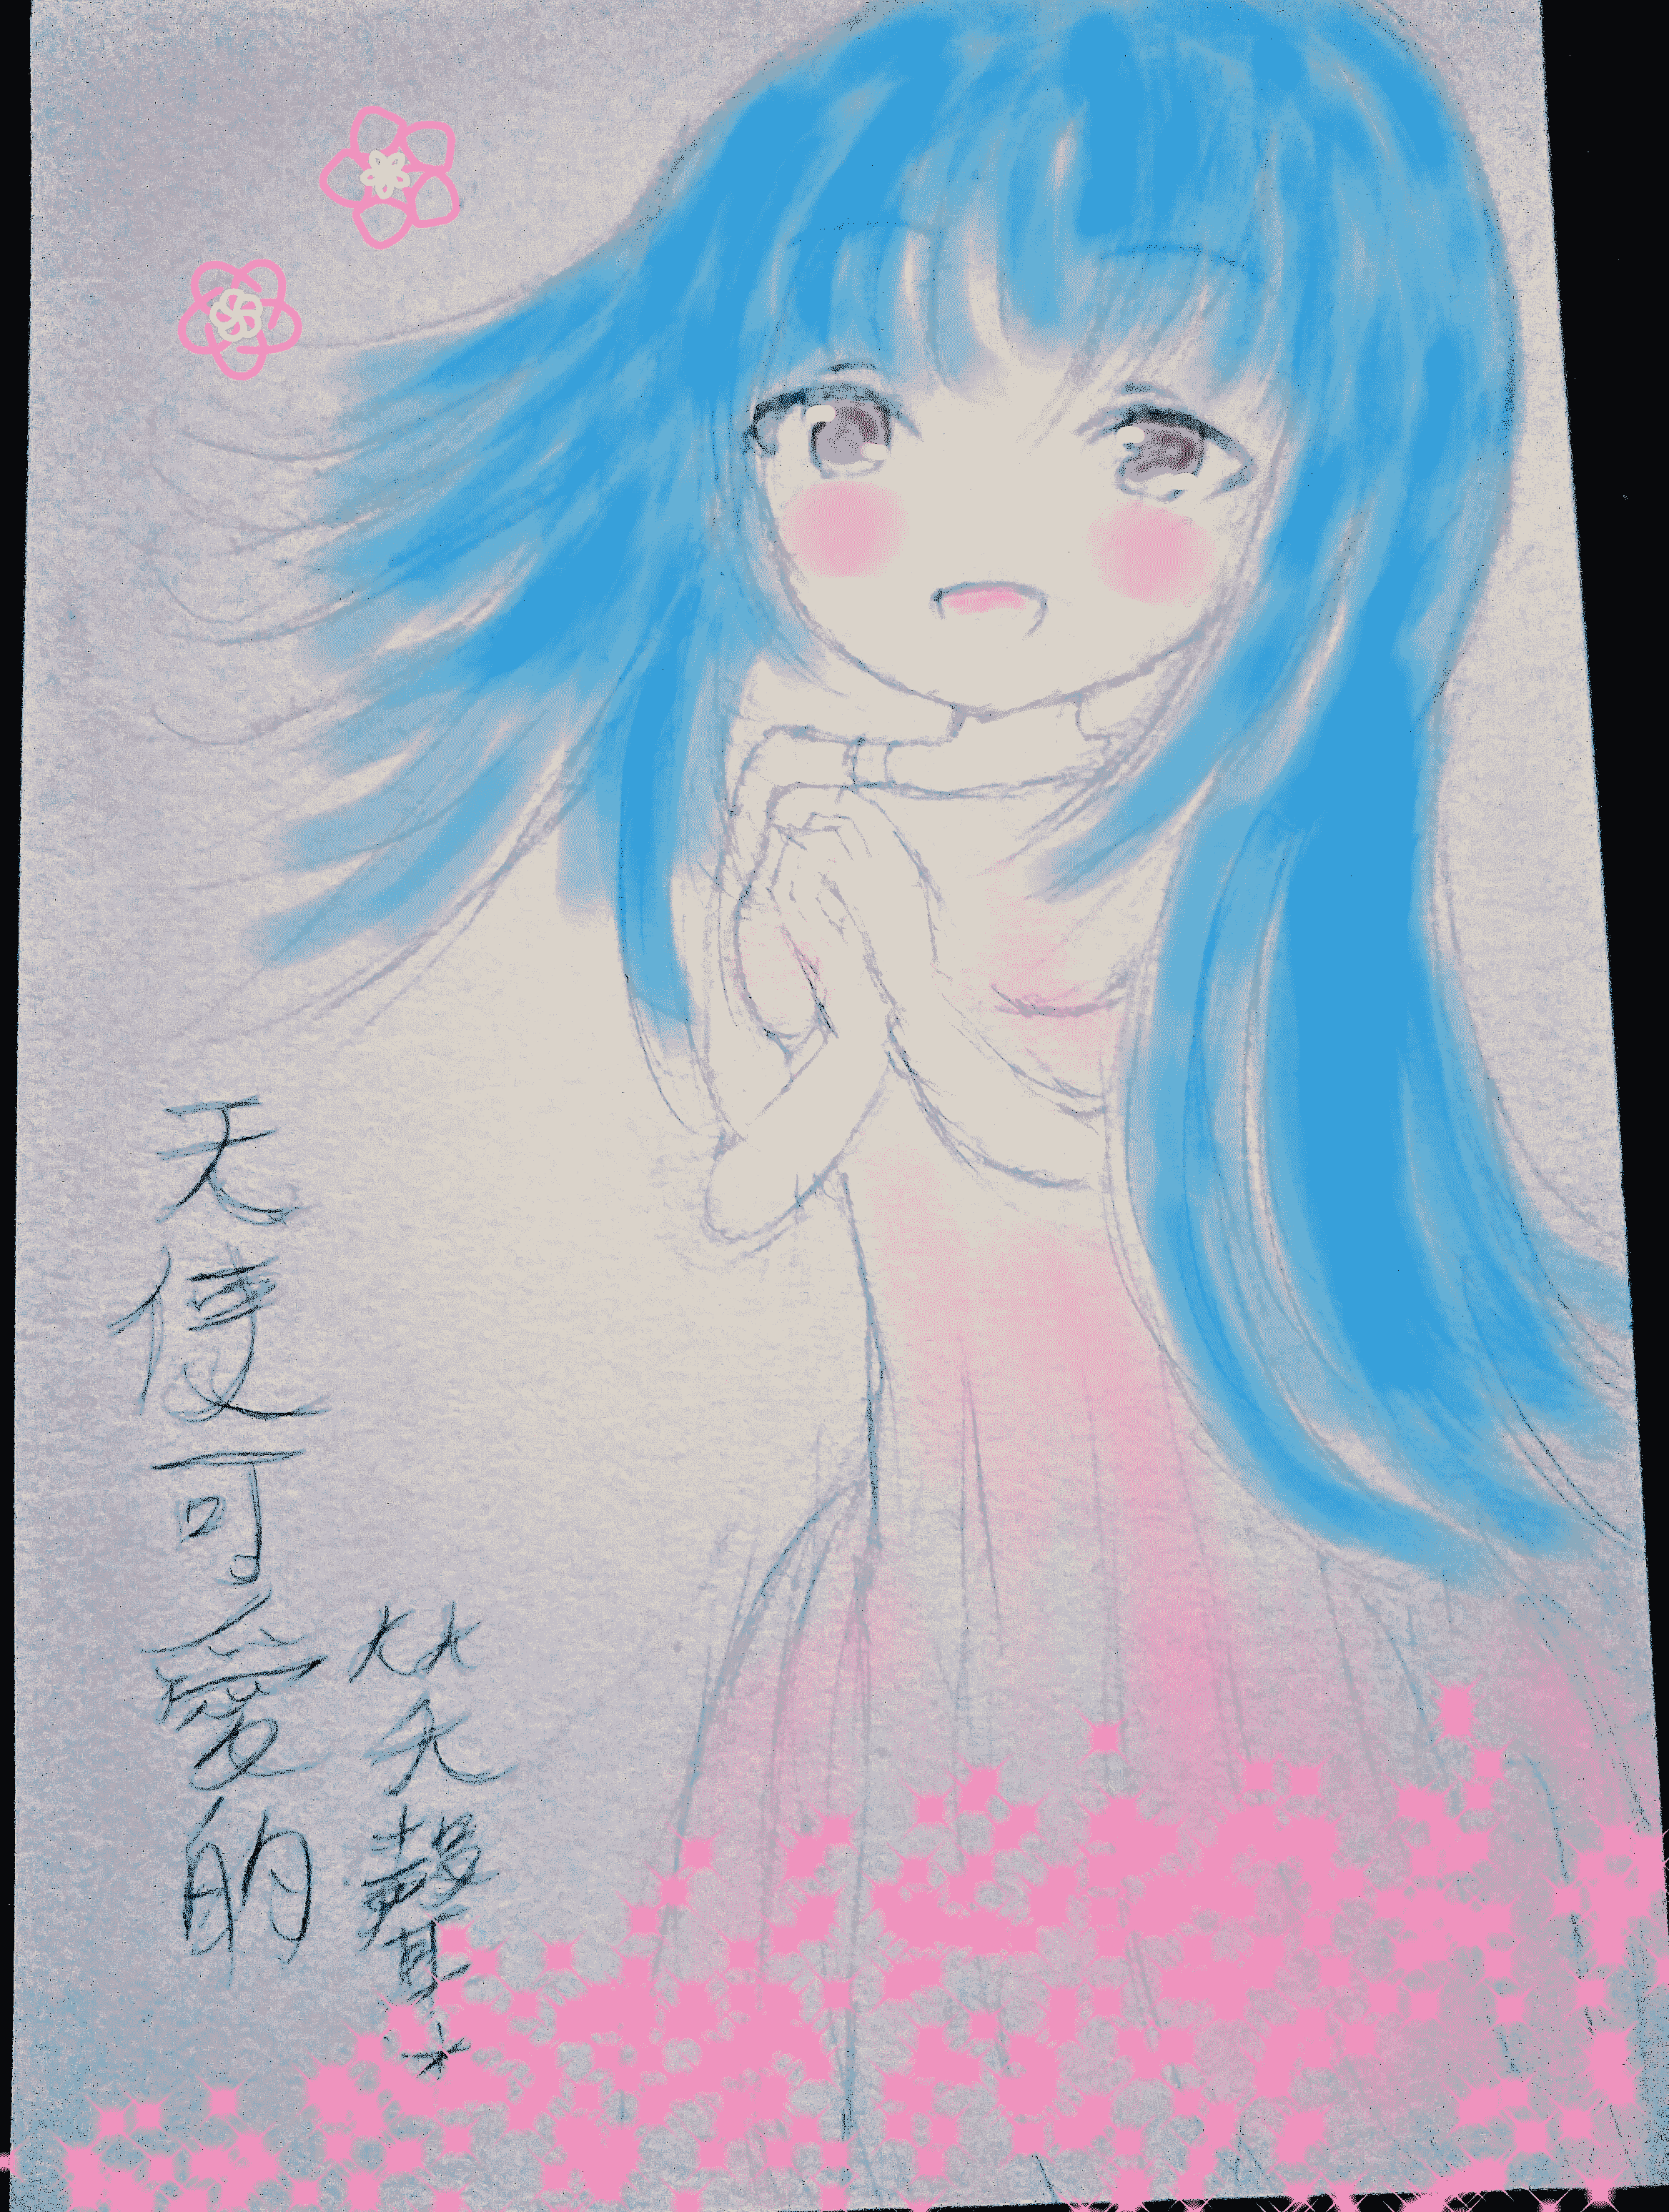 天使可愛的
笑聲